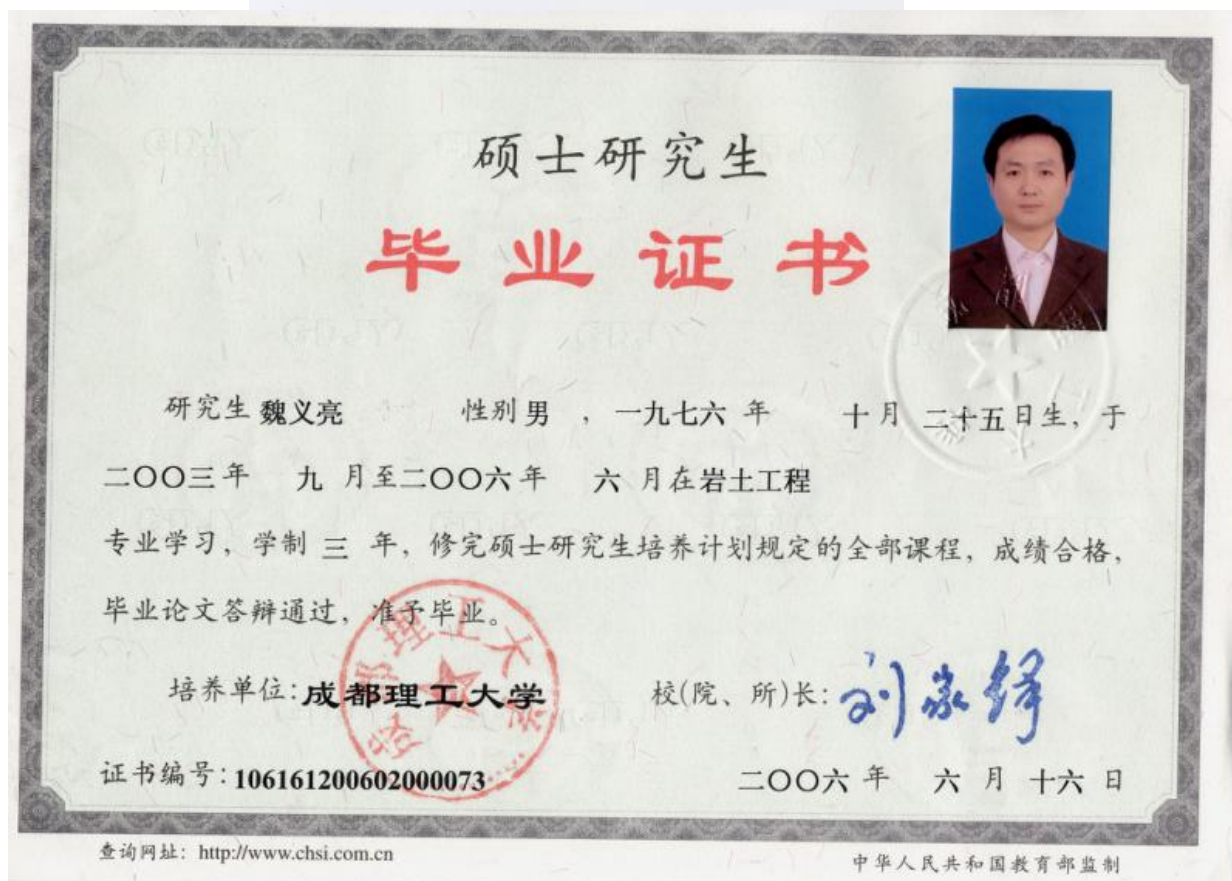 硕士研究生
毕业证书
研究生 魏义亮 性别 男 ，一九七六 年 十 月 二十五 日生，于
二〇〇三 年 九 月至 二〇〇六 年 六 月在 岩土工程
专业学习，学制 三 年，修完硕士研究生培养计划规定的全部课程，成绩合格，
毕业论文答辩通过，准予毕业。
成都理工大学
培养单位：成都理工大学 校(院、所)长：刘家铎
证书编号：106161200602000073 二〇〇六 年 六 月 十六 日
查询网址：http://www.chsi.com.cn 中华人民共和国教育部监制